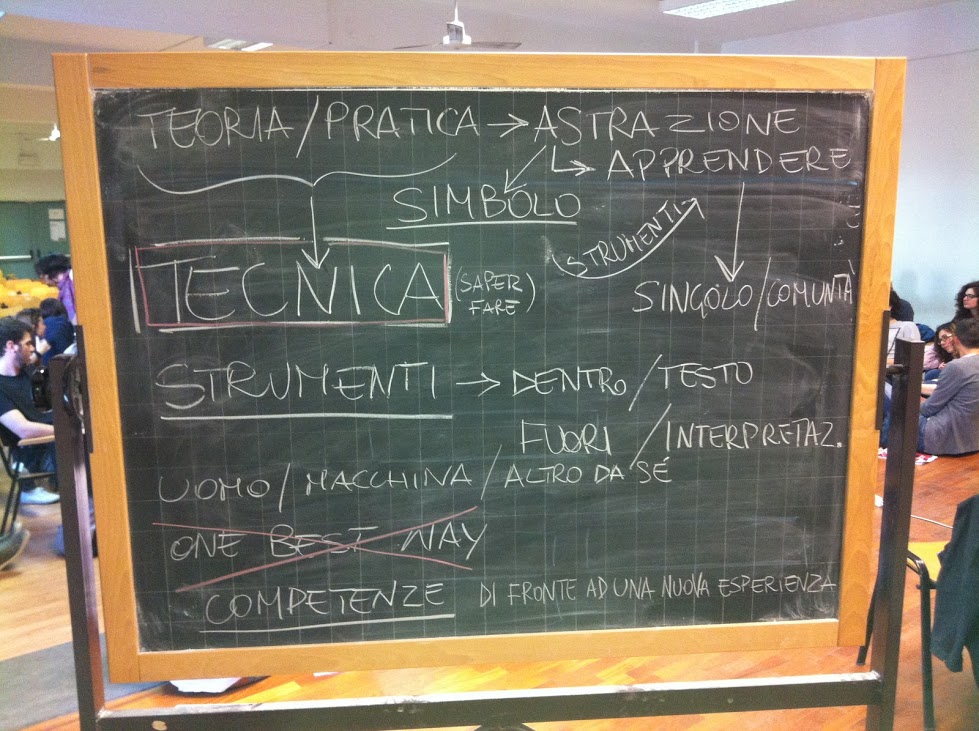 TEORIA / PRATICA → ASTRAZIONE
↳ APPRENDERE
SIMBOLO
STRUMENTI
TECNICA (SAPER FARE)
SINGOLO / COMUNTÀ
STRUMENTI → DENTRO / TESTO
FUORI / INTERPRETAZ.
UOMO / MACCHINA / ALTRO DA SÉ
ONE BEST WAY
COMPETENZE DI FRONTE AD UNA NUOVA ESPERIENZA